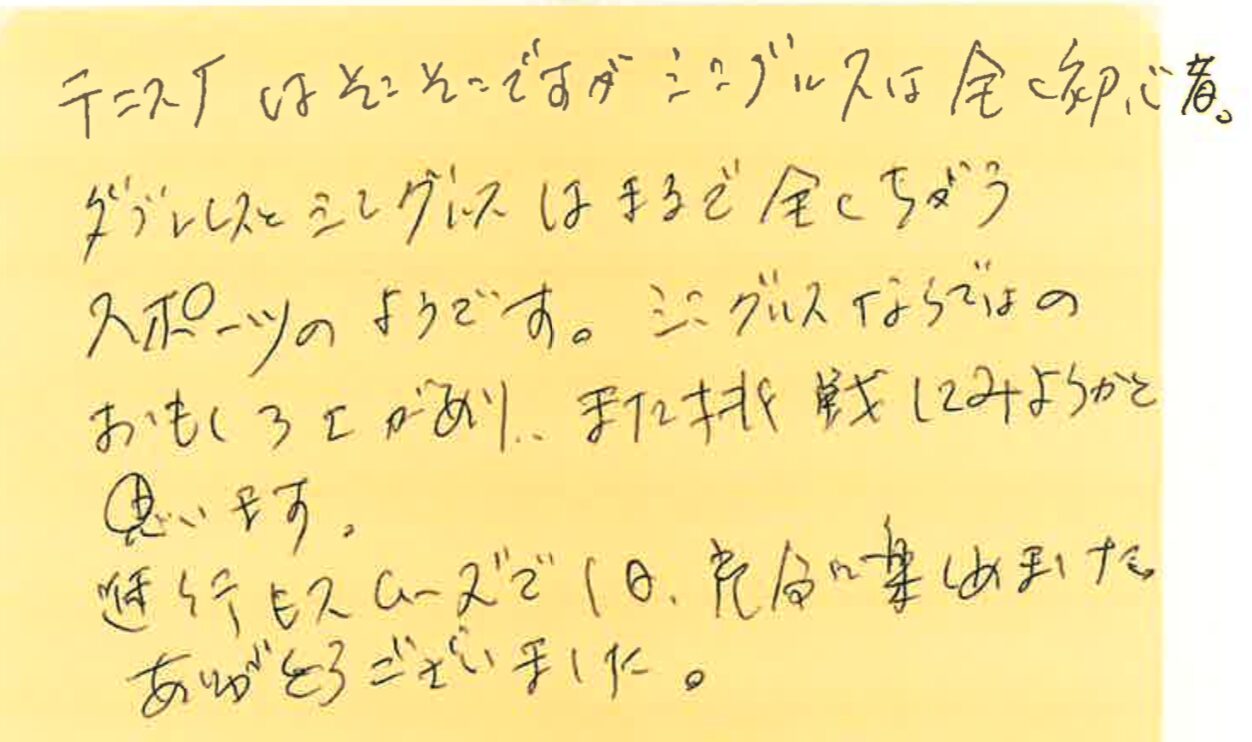 テニスはそこそこですが シングルスは 全く初心者。
ダブルスとシングルス はまるで 全くちがう
スポーツの ようです。シングルスならではの
おもしろさがあり、また挑戦してみようかと
思います。
進行もスムーズで1日、充分に楽しめました。
ありがとうございました。